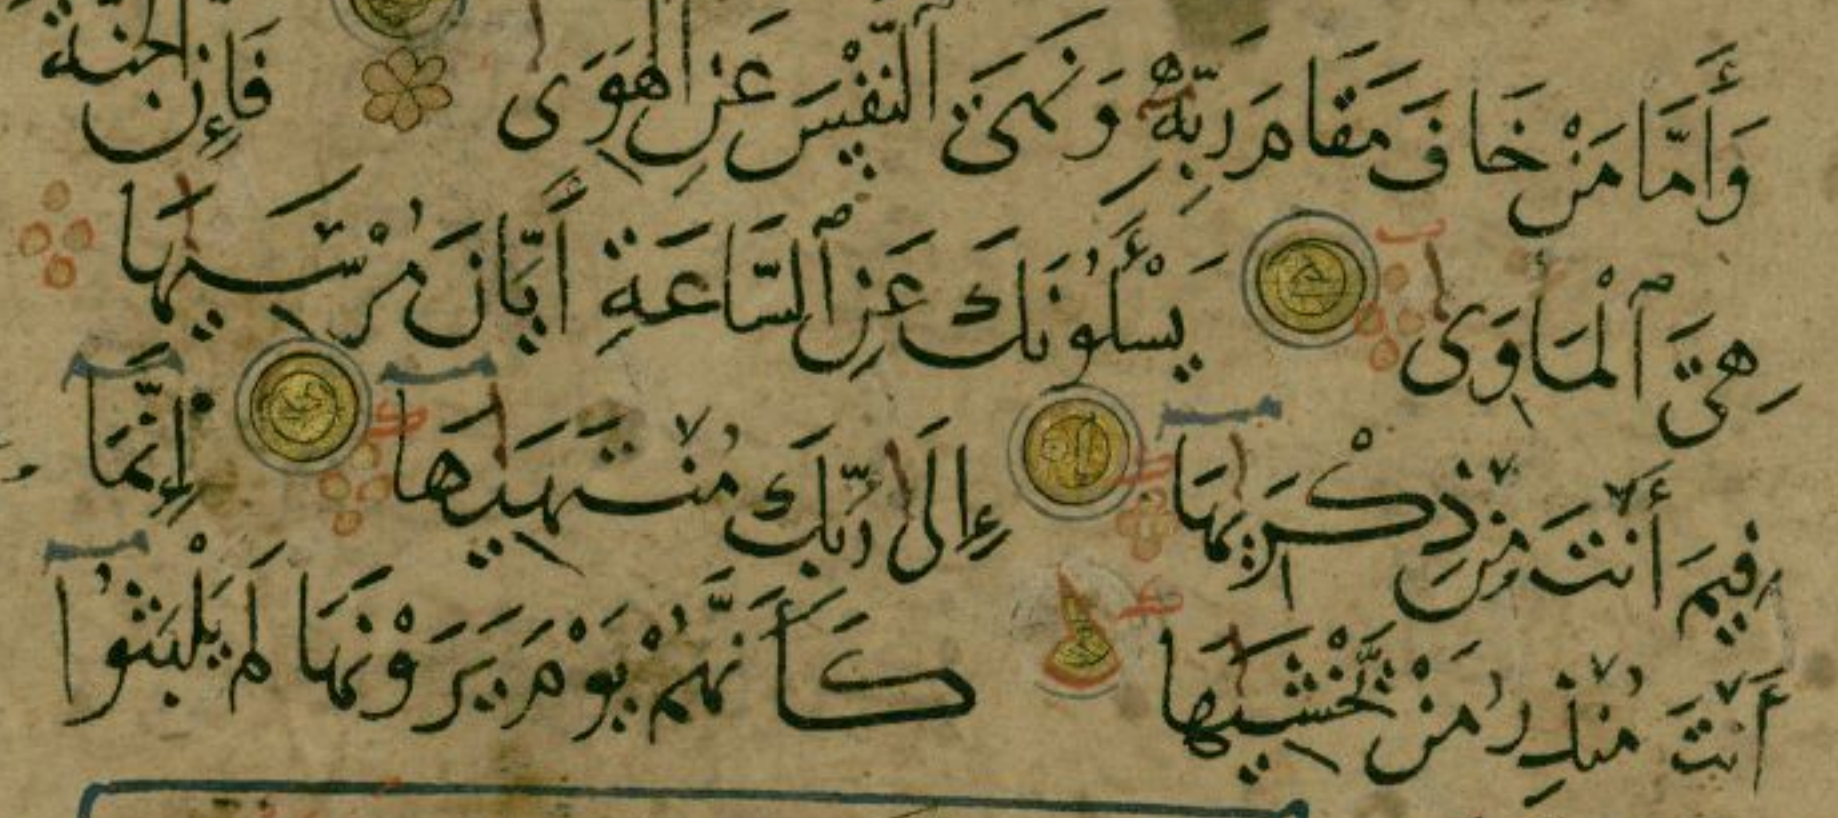 وَأَمَّا مَنْ خَافَ مَقَامَ رَبِّهِ وَنَهَى ٱلنَّفْسَ عَنِ ٱلْهَوَى فَإِنَّ ٱلْجَنَّةَ
هِيَ ٱلْمَأْوَى يَسْأَلُونَكَ عَنِ ٱلسَّاعَةِ أَيَّانَ مُرْسَىٰهَا
فِيمَ أَنتَ مِن ذِكْرَىٰهَا إِلَى رَبِّكَ مُنتَهَىٰهَا إِنَّمَا
أَنتَ مُنذِرُ مَنْ يَّخْشَىٰهَا كَأَنَّهُمْ يَوْمَ يَرَوْنَهَا لَمْ يَلْبَثُوا